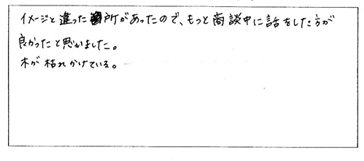 イメージと違った所があったので、もっと商談中に話をした方が
良かったと思いました。
木が枯れかけている。